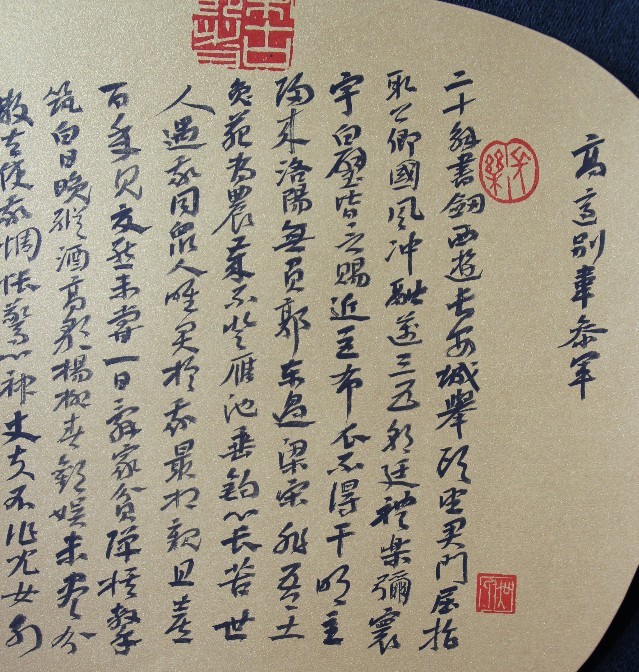 高適別韋參軍
二十解書劍西遊長安城舉頭望君門屈指
取公卿國風沖融邁三五朝廷禮樂彌寰
宇白璧皆言賜近臣布衣不得干明主
歸來洛陽無負郭東過梁宋非吾土
兔苑為農歲不登雁池垂釣心長苦世
人遇我同眾人唯君於我最相親且喜
百年見交態未嘗一日辭家貧彈棋擊
筑白日晚縱酒高歌楊柳春歡娛未盡分
散去使我惆悵驚心神丈夫不作兒女別